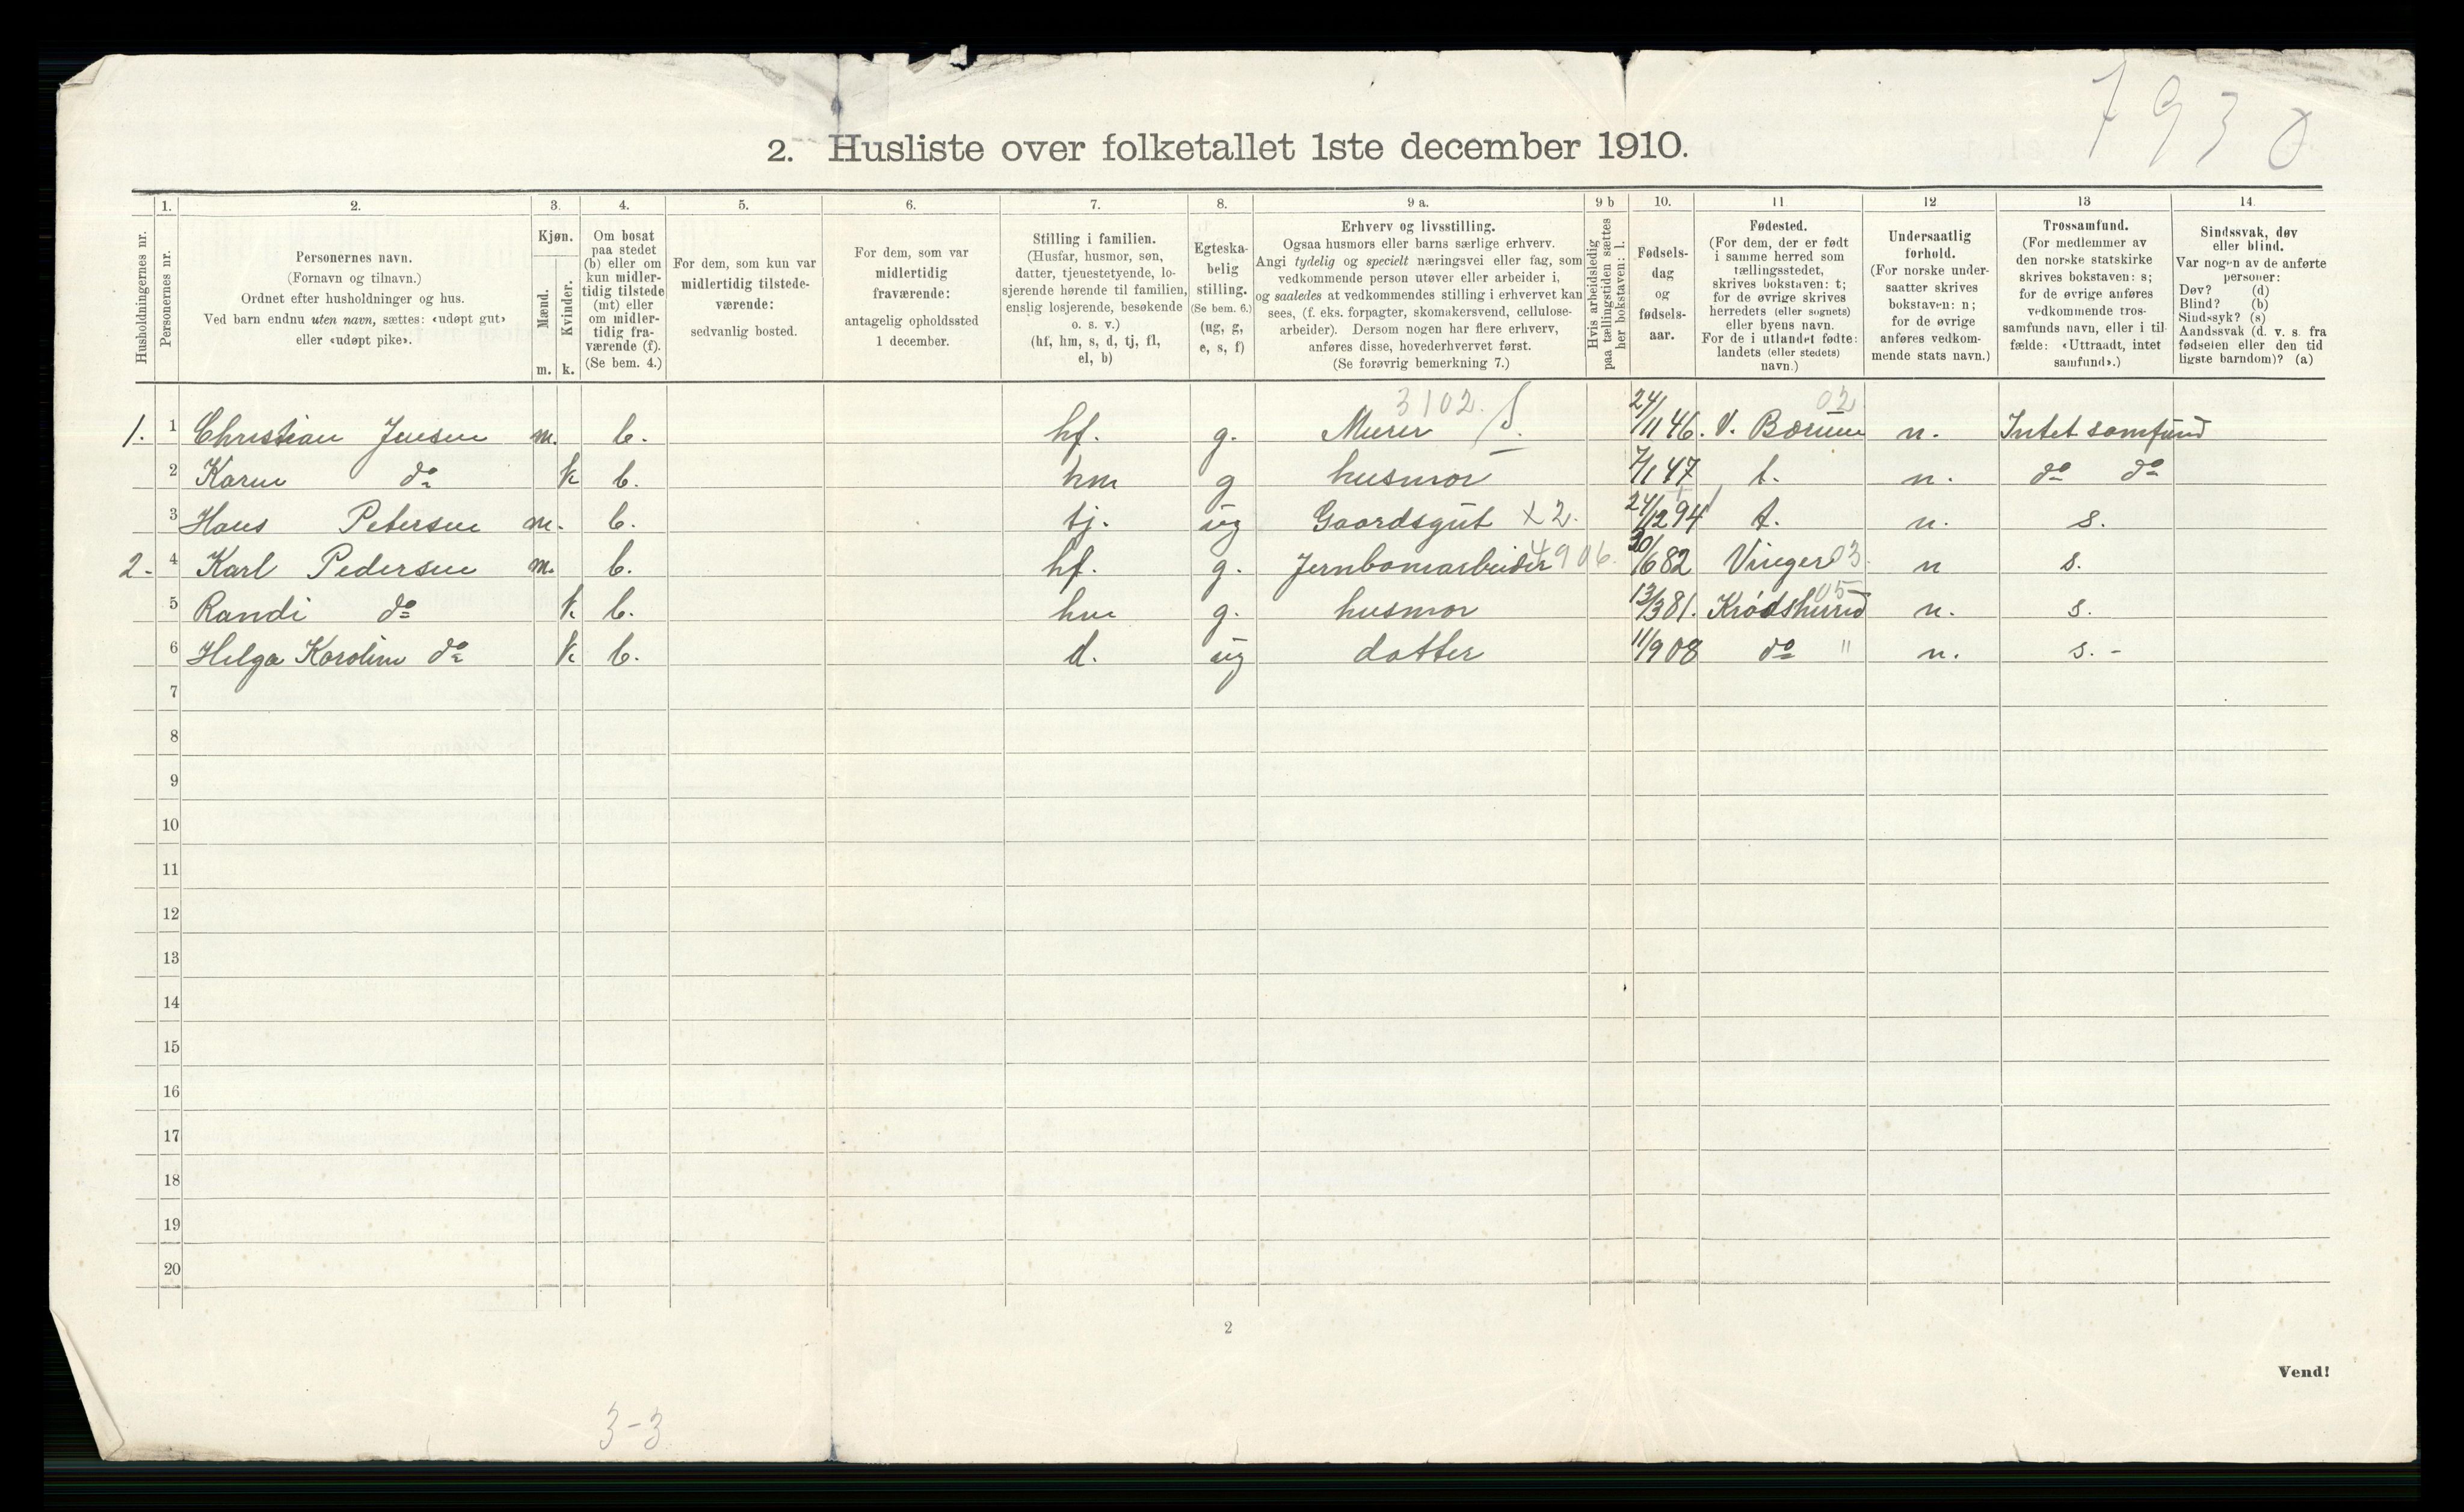 7930
2. Husliste over folketallet 1ste december 1910.
1. 2. 3. 4. 5. 6. 7. 8. 9 a. 9 b 10. 11 12 13 14
Husholdningernes nr.
Personernes nr.
Personernes navn.
(Fornavn og tilnavn.)
Ordnet efter husholdninger og hus.
Ved barn endnu uten navn, sættes: «udøpt gut»
eller «udøpt pike».
Kjøn.
Mænd.
Kvinder.
m. k.
Om bosat
paa stedet
(b) eller om
kun midler-
tidig tilstede
(mt) eller
om midler-
tidig fra-
værende (f).
(Se bem. 4.)
For dem, som kun var
midlertidig tilstede-
værende:
sedvanlig bosted.
For dem, som var
midlertidig
fraværende:
antagelig opholdssted
1 december.
Stilling i familien.
(Husfar, husmor, søn,
datter, tjenestetyende, lo-
sjerende hørende til familien,
enslig losjerende, besøkende
o. s. v.)
(hf, hm, s, d, tj, fl,
el, b)
Egteska-
belig
stilling.
(Se bem. 6.)
(ug, g,
e, s, f)
Erhverv og livsstilling.
Ogsaa husmors eller barns særlige erhverv.
Angi tydelig og specielt næringsvei eller fag, som
vedkommende person utøver eller arbeider i,
og saaledes at vedkommendes stilling i erhvervet kan
sees, (f. eks. forpagter, skomakersvend, cellulose-
arbeider). Dersom nogen har flere erhverv,
anføres disse, hovederhvervet først.
(Se forøvrig bemerkning 7.)
Hvis arbeidsledig
paa tællingstiden sættes
her bokstaven: l.
Fødsels-
dag
og
fødsels-
aar.
Fødested.
(For dem, der er født
i samme herred som
tællingsstedet,
skrives bokstaven: t;
for de øvrige skrives
herredets (eller sognets)
eller byens navn.
For de i utlandet fødte:
landets (eller stedets)
navn.)
Undersaatlig
forhold.
(For norske under-
saatter skrives
bokstaven: n;
for de øvrige
anføres vedkom-
mende stats navn.)
Trossamfund.
(For medlemmer av
den norske statskirke
skrives bokstaven: s;
for de øvrige anføres
vedkommende tros-
samfunds navn, eller i til-
fælde: «Uttraadt, intet
samfund».)
Sindssvak, døv
eller blind.
Var nogen av de anførte
personer:
Døv? (d)
Blind? (b)
Sindssyk? (s)
Aandssvak (d. v. s. fra
fødselen eller den tid
ligste barndom)? (a)
3102. 02
1. 1 Christian Jensen m. b. hf. g. Murer S. 24/11 46. V. Bærum n. Intet samfund
2 Karen do k b. hm g husmor 7/1 47 t. n. do do
3 Hans Petersen m. b. tj. ug Gaardsgut x 2. 24/12 94 t. n. s.
2. 4 Karl Pedersen m. b. hf. g. Jernbanearbeider 4906. 30/6 82 Vinger 03 n s.
5 Randi do k b. hm g. husmor 13/3 81. Krødsherred 05 n. s.
6 Helga Karoline do k b. d. ug datter 11/9 08 do " n. s. -
7
8
9
10
11
12
13
14
15
16
17
18
19
20
2
Vend!
3-3